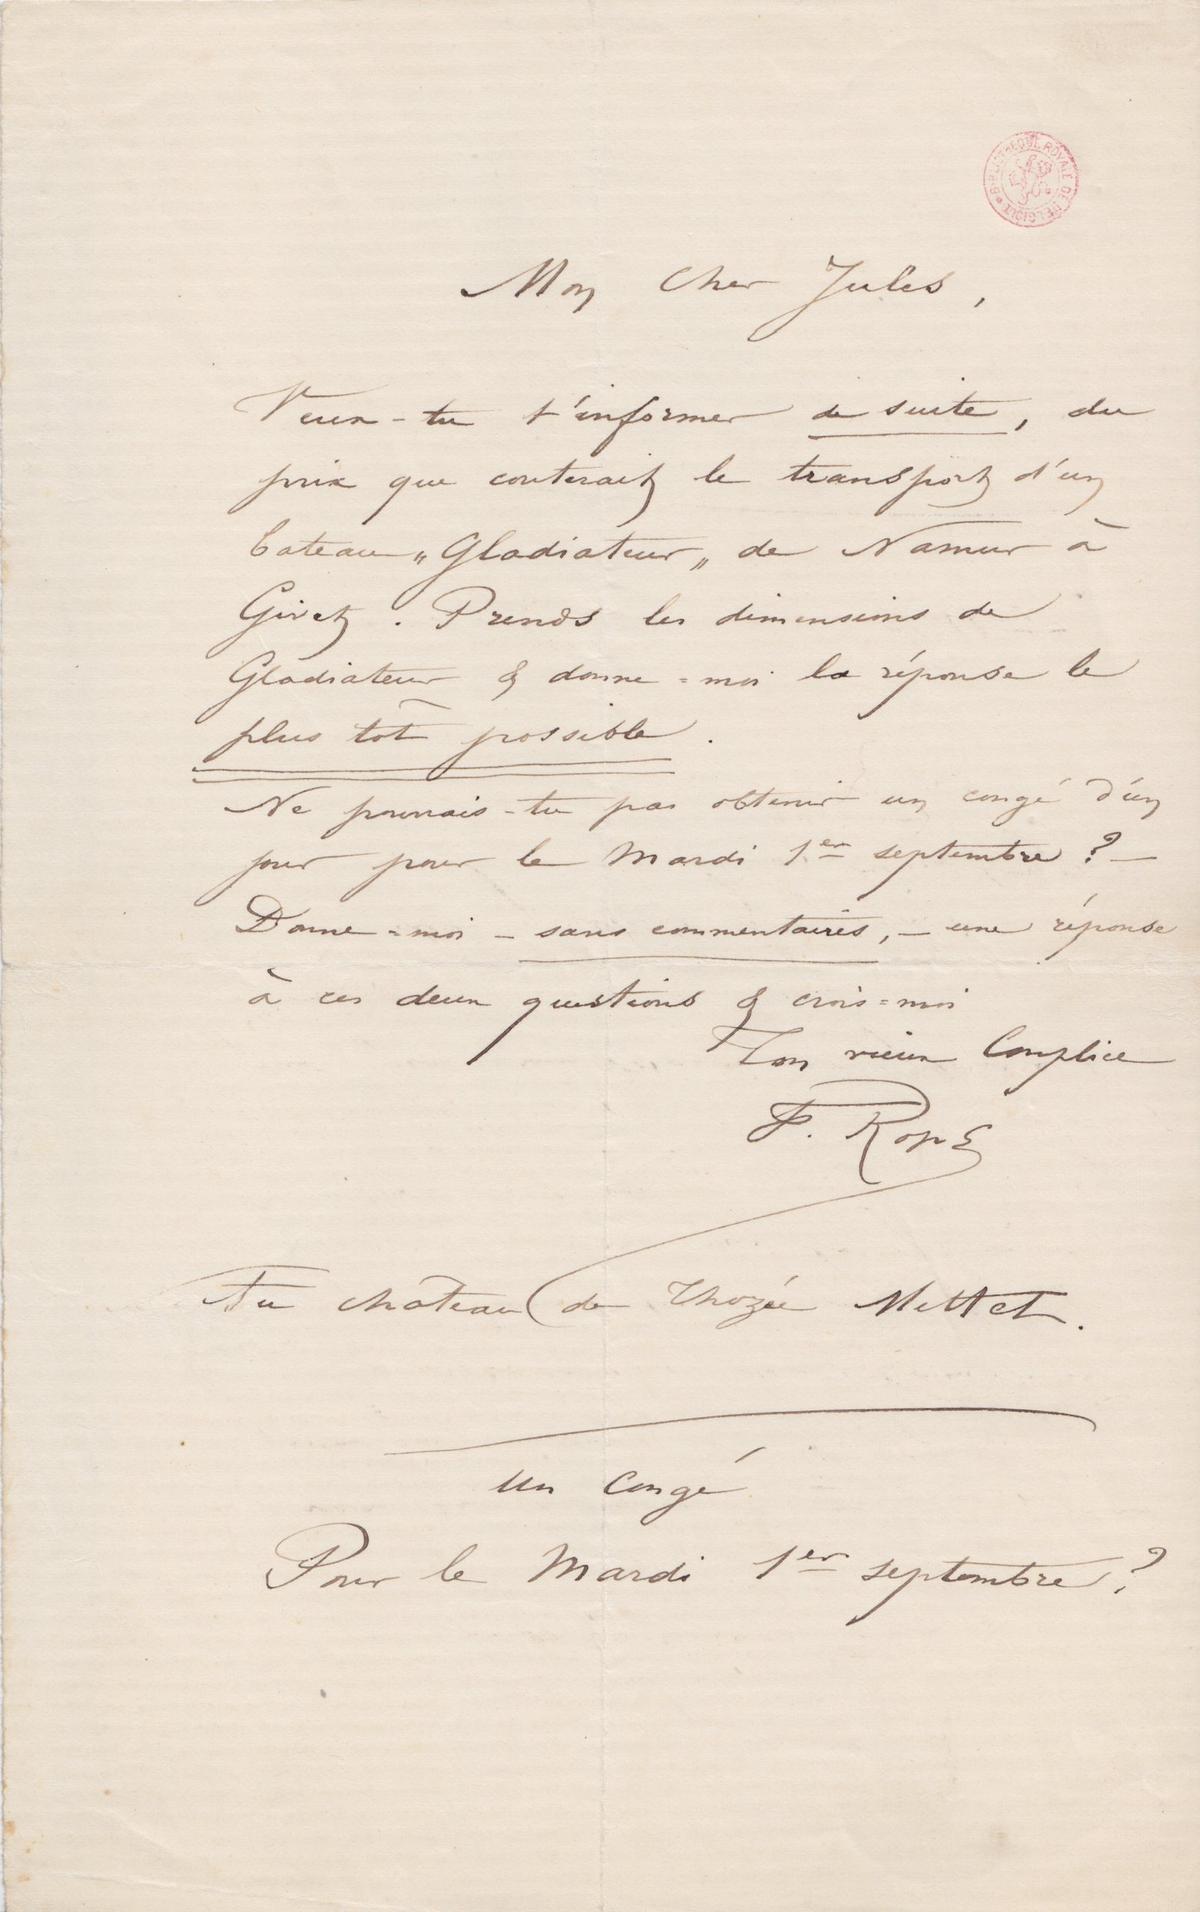 BIBLIOTHÈQUE ROYALE DE BELGIQUE
Mon cher Jules,
Veux-tu t'informer de suite, du
prix que couterait le transport d'un
bateau „Gladiateur„ de Namur à
Givet. Prends les dimensions de
Gladiateur & donne=moi la réponse le
plus tôt possible.
Ne pourrais-tu pas obtenir un congé d'un
jour pour le Mardi 1er septembre? —
Donne=moi – sans commentaires, – une réponse
à ces deux questions & crois=moi
Ton vieux Complice
F. Rops
Au château de Thozée Mettet.
Un Congé
Pour le Mardi 1er septembre?